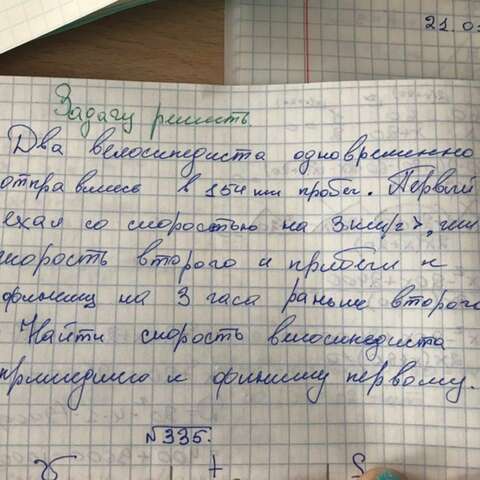 21.0
Задачу решить
Два велосипедиста одновременно
отправились в 154 км пробег. Первый
ехал со скоростью на 3км/г >, чем
скорость второго и прибыл к
финишу на 3 часа раньше второго
Найти скорость велосипедиста
пришедшего к финишу первому.
№335.